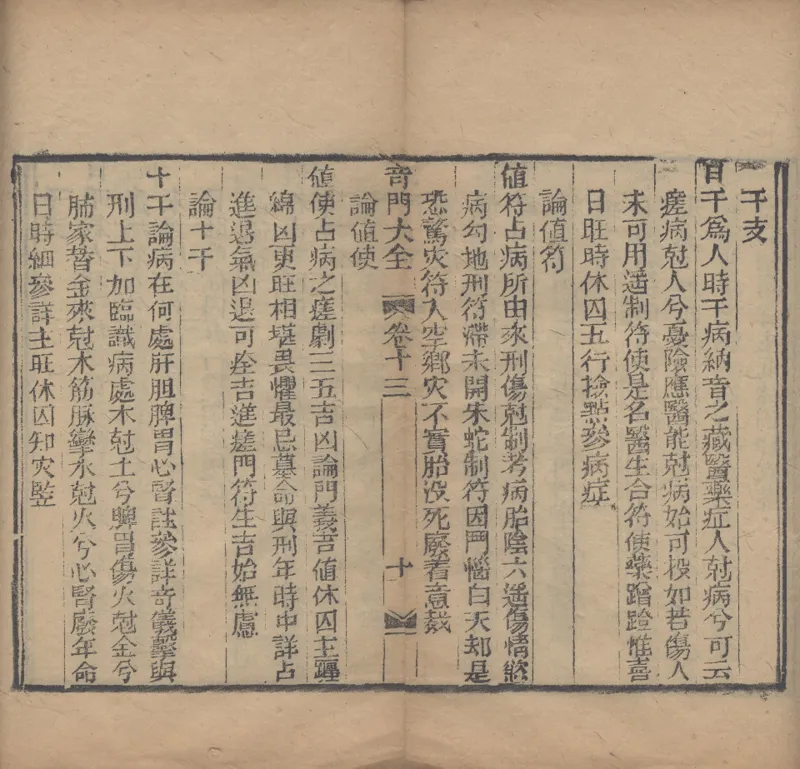 干支
日干爲人時干病納音之藏醫藥症人尅病兮可云
瘥病尅人兮憂險應醫能尅病始可投如若傷人
未可用遥制符使是名醫生合符使藥蹭蹬惟喜
日旺時休囚五行撿點參病症
論值符
値符占病所由來刑傷尅制考病胎陰六遥傷情慾
病勾地刑符滯未開朱蛇制符因鬥惱白天却是
恐驚灾符入空鄉灾不實胎没死廢着意裁
奇門大全 卷十三 十
論值使
値使占病之瘥劇三五吉凶論門義吉值休囚主纒
綿凶更旺相堪畏懼最忌墓命與刑年時中詳占
進退氣凶退可痊吉進瘥門符生吉始無慮
論十干
十干論病在何處肝胆脾胃心腎註參詳奇儀擊與
刑上下加臨識病處木尅土兮脾胃傷火尅金兮
肺家替金來尅木筋脉攣水尅火兮心腎廢年命
日時細參詳主旺休囚知灾